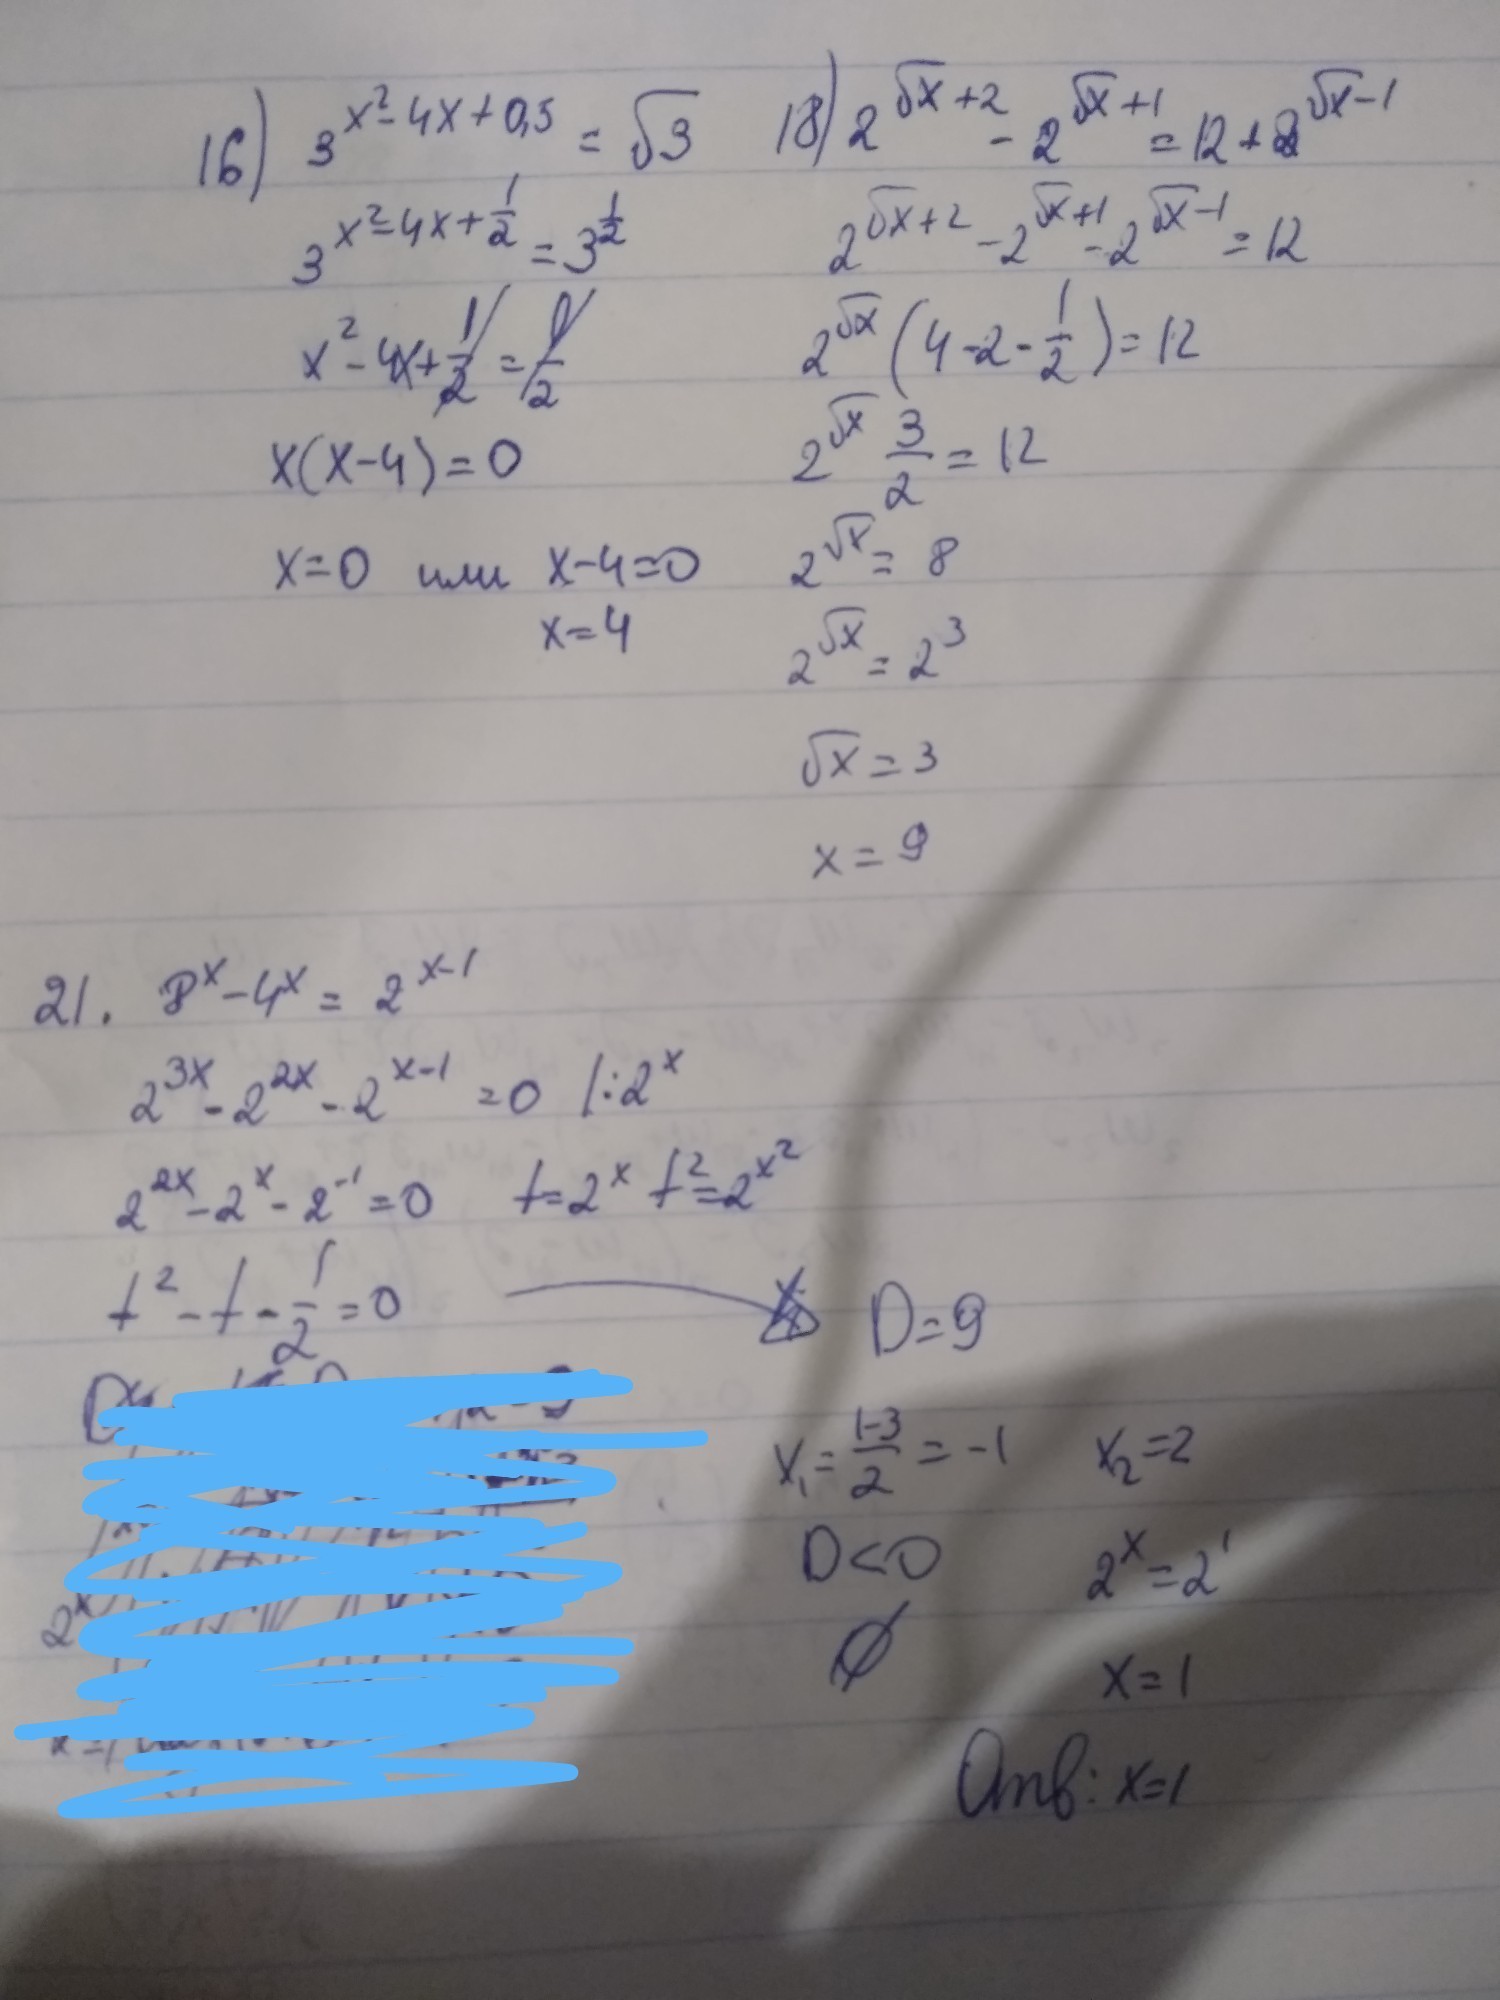 16) 3^{x²-4x+0,5} = √3
3^{x²-4x+1/2} = 3^{1/2}
x²-4x+1/2 = 1/2
x(x-4)=0
x=0 или x-4=0
x=4
18) 2^{√x+2} - 2^{√x+1} = 12 + 2^{√x-1}
2^{√x+2} - 2^{√x+1} - 2^{√x-1} = 12
2^{√x} (4-2-1/2) = 12
2^{√x} 3/2 = 12
2^{√x} = 8
2^{√x} = 2³
√x = 3
x = 9
21. 8^x - 4^x = 2^{x-1}
2^{3x} - 2^{2x} - 2^{x-1} = 0 /:2^x
2^{2x} - 2^x - 2^{-1} = 0 t=2^x t²=2^{x²}
t² - t - 1/2 = 0
D=9
x₁ = (1-3)/2 = -1 x₂=2
D<0 2^x=2¹
∅
x=1
Отв: x=1